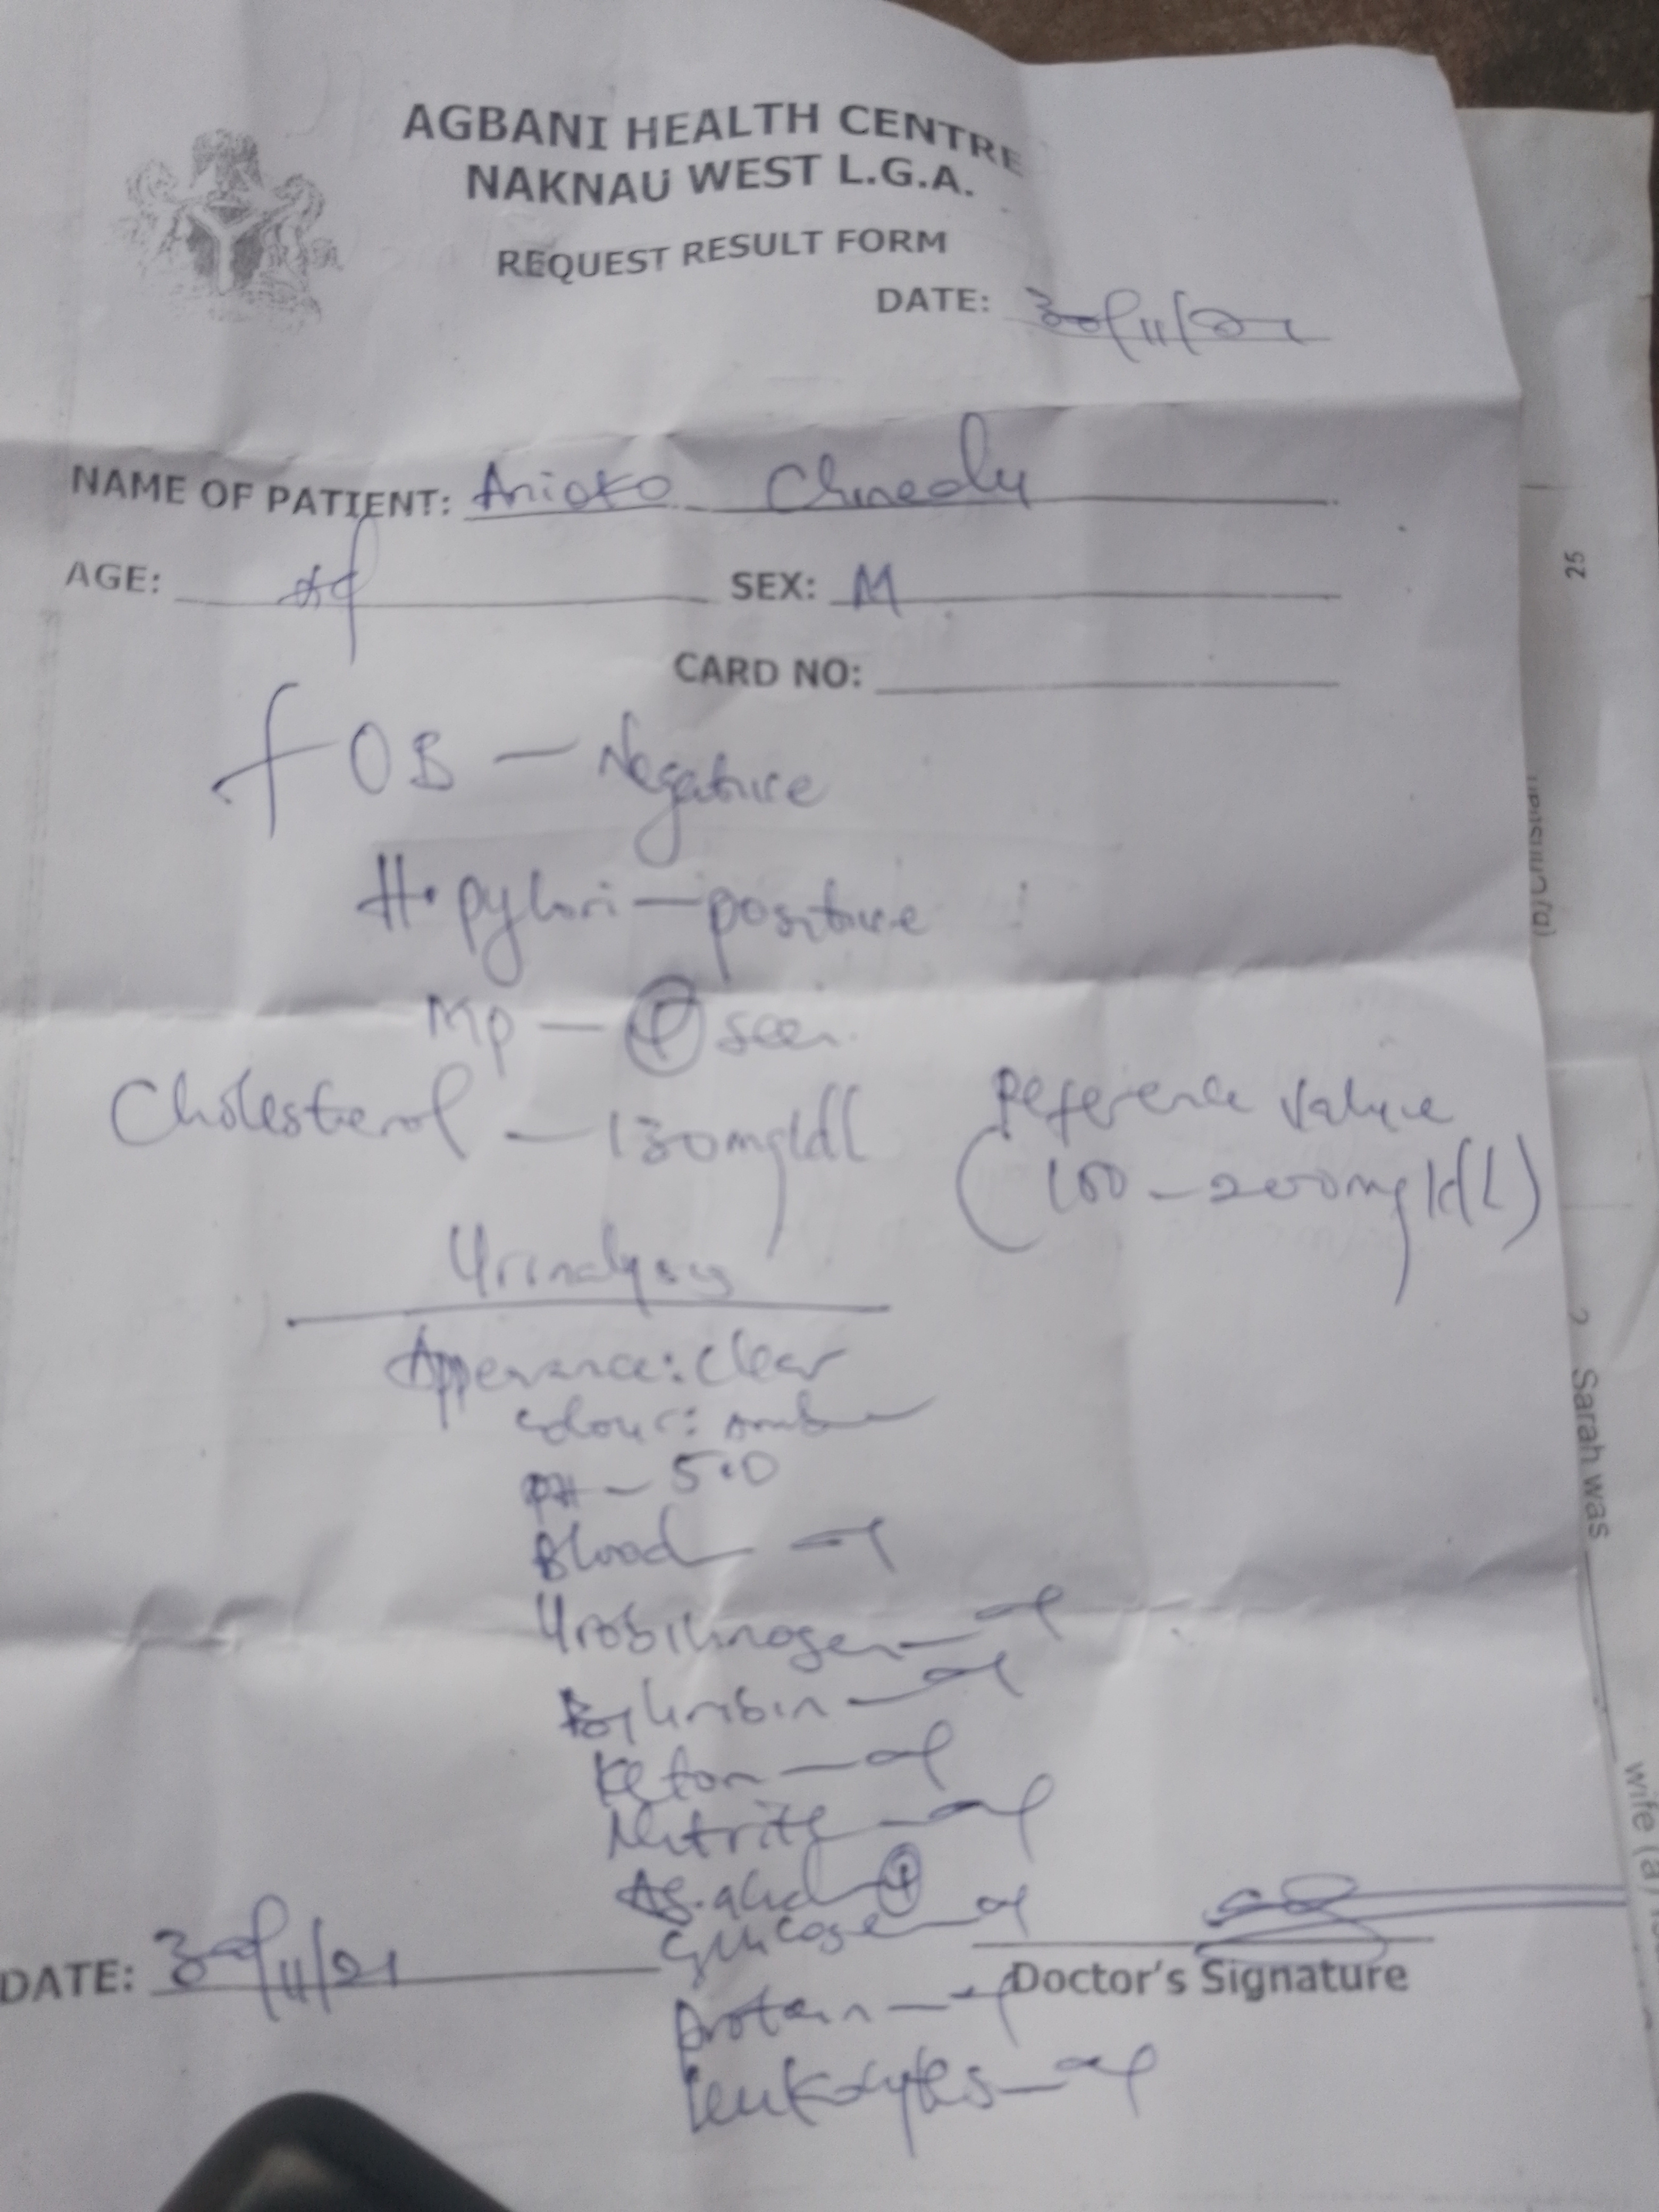 AGBANI HEALTH CENTRE
NAKNAU WEST L.G.A.
REQUEST RESULT FORM
DATE: 30/11/21
NAME OF PATIENT: Anioko Chinedu
AGE: Ad
SEX: M
CARD NO:
FOB — Negative
H. pylori — positive
MP — + seen
Cholesterol — 130mg/dl
Reference value
(100 - 200mg/dL)
Urinalysis
Appearance: clear
colour: Amber
PH — 5.0
Blood
Urobilinogen
Bylirubin
Keton
Nitrite
As. acid +
Glucose
protein
leukocytes
DATE: 30/11/21
Doctor's Signature
25
(b) Christian
2 Sarah was
wife (a)